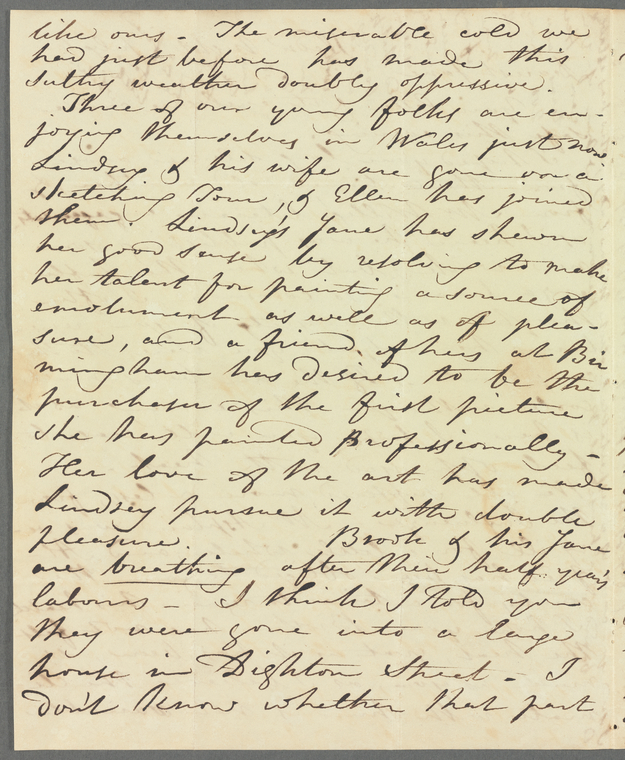 like ours - The miserable cold we
had just before has made this
sultry weather doubly oppressive.
Three of our young folks are en-
joying themselves in Wales just now
Lindsey & his wife are gone on a
sketching Tour, & Ellen has joined
them. Lindsey's Jane has shewn
her good sense by resolving to make
her talent for painting a source of
emolument as well as of plea-
sure, and a friend of hers at Bir
mingham has desired to be the
purchaser of the first picture
she has painted Professionally -
Her love of the art has made
Lindsey pursue it with double
pleasure Brook & his Jane
are breathing after their half year's
labours - I think I told you
they were gone into a large
house in Dighton Street - I
don't know whether that part